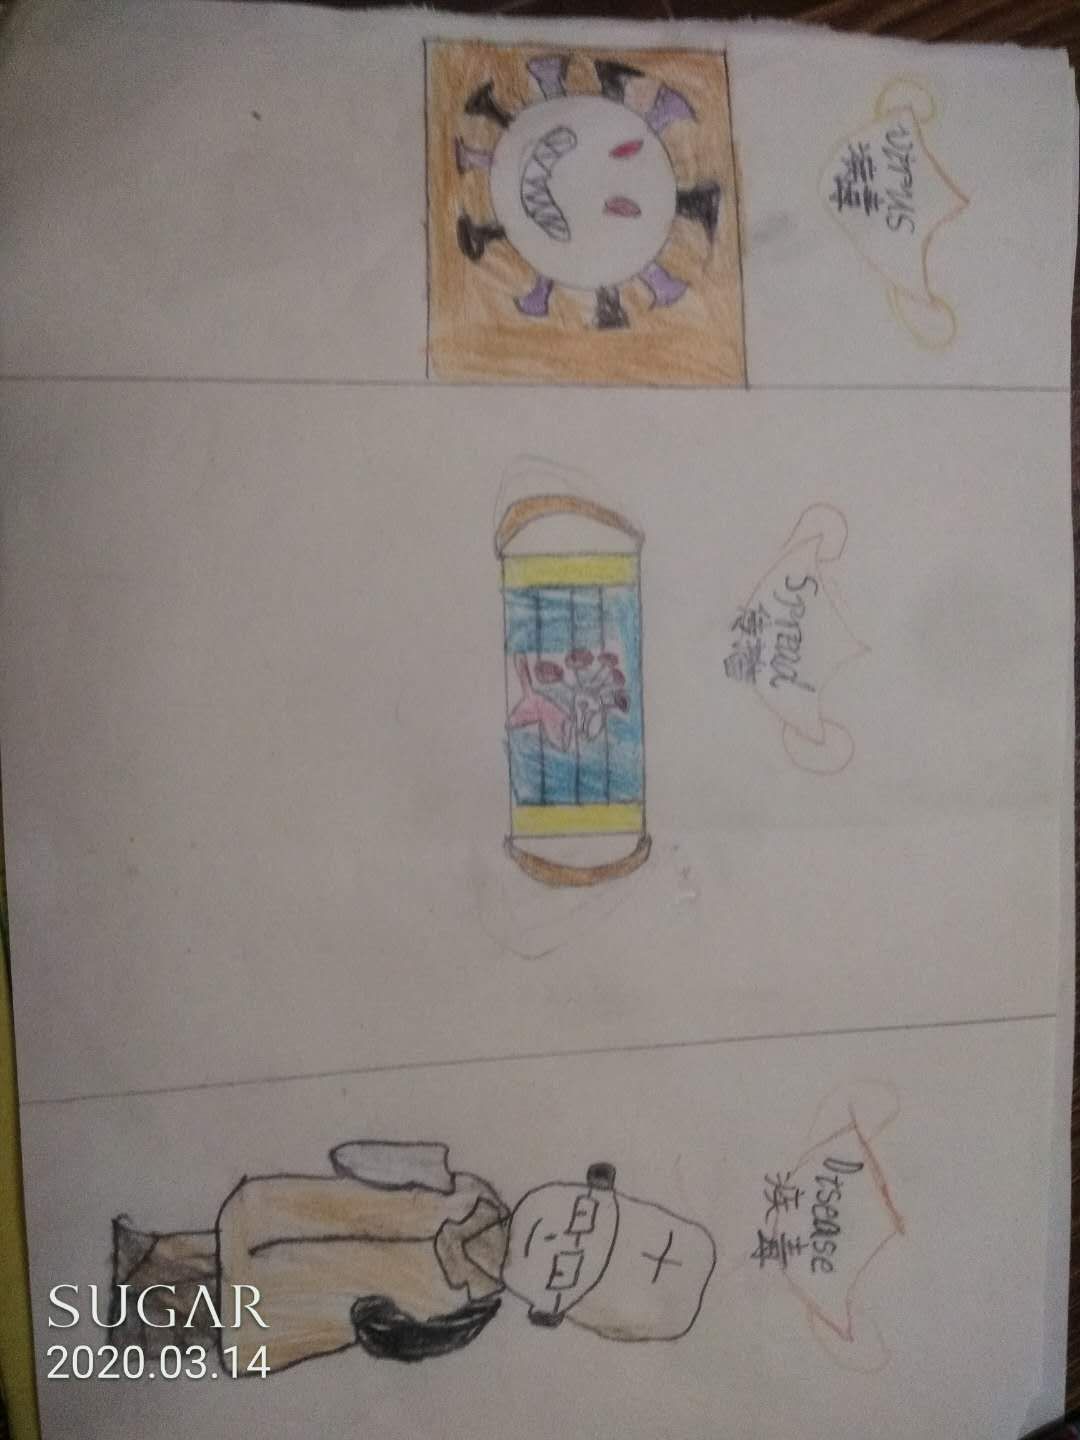 virus
病毒
Spread
传播
Disease
SUGAR
2020.03.14